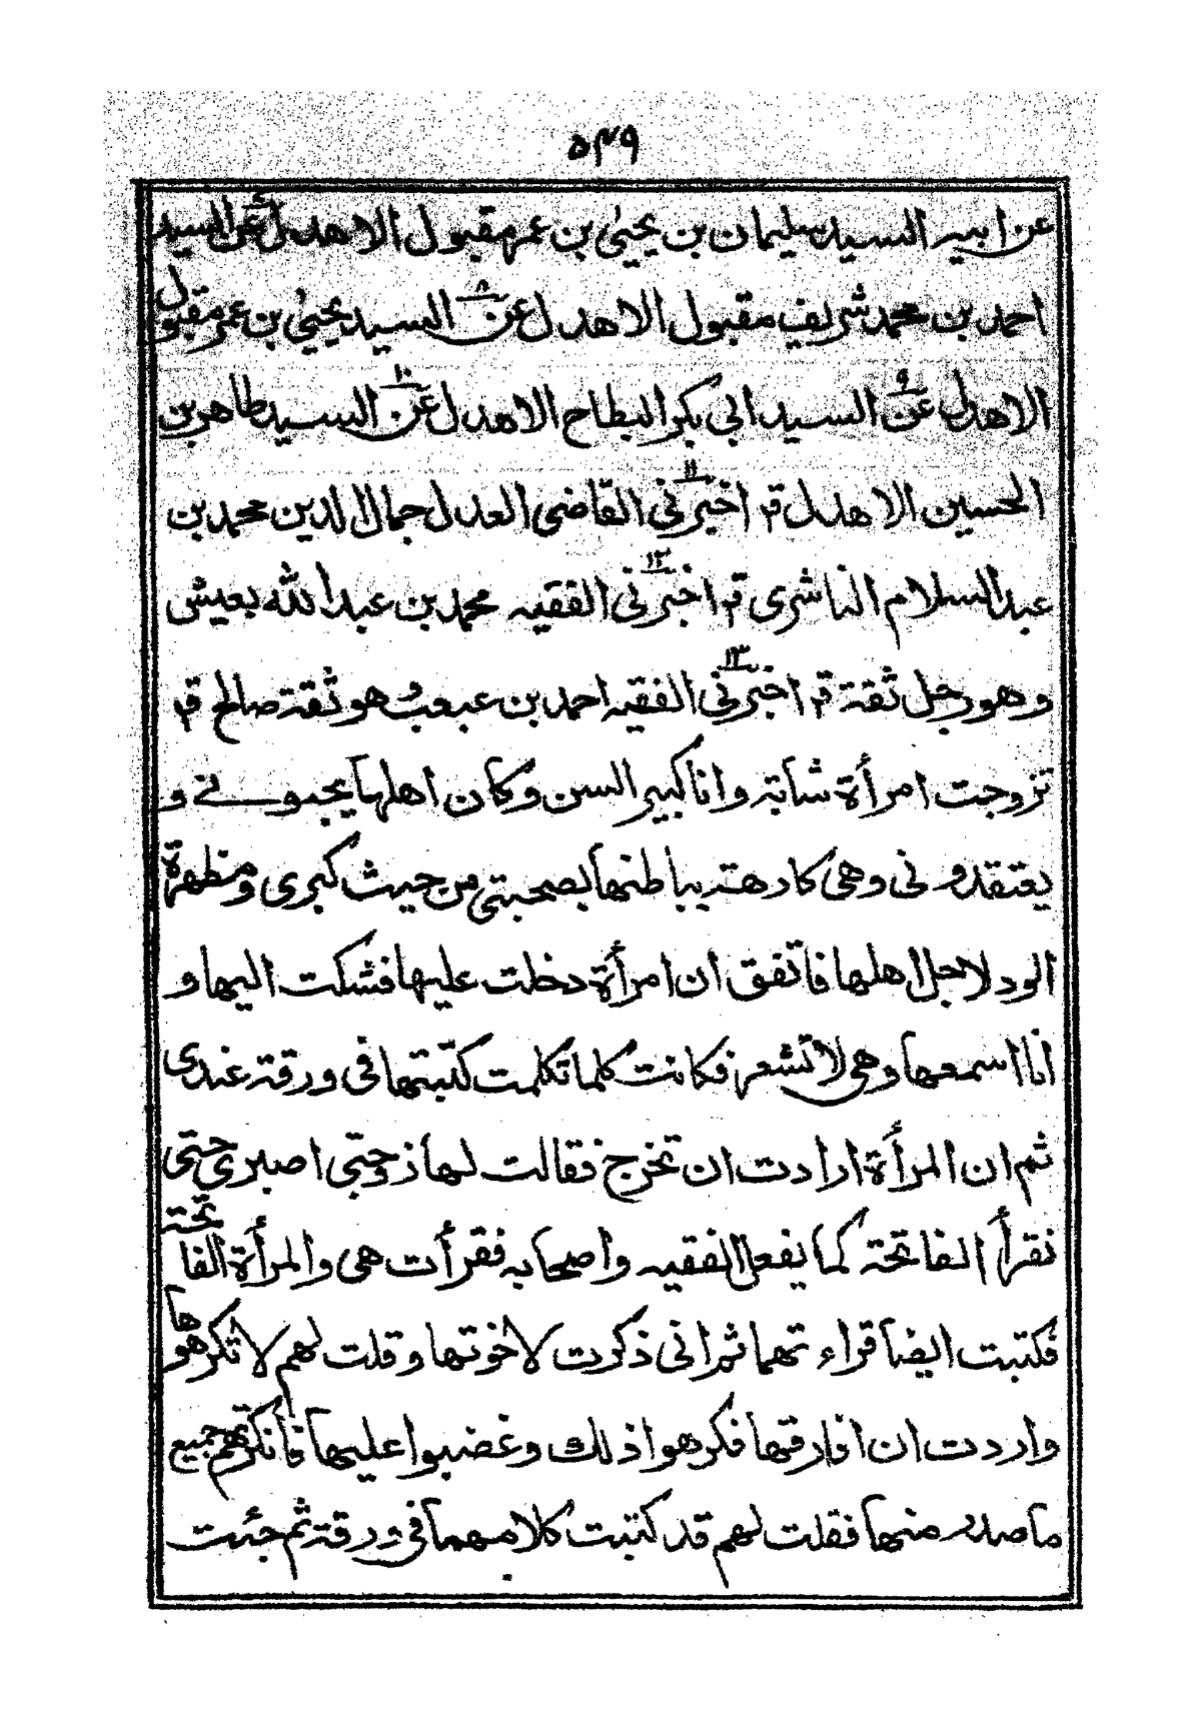 ٥٤٩
عن ابيه السيد سليمان بن يحيىٰ بن عمر مقبول الاهدل عن السيد
احمد بن محمد شريف مقبول الاهدل عن ٨ السيد يحيىٰ بن عمر مقبول
الاهدل عن ٩ السيد ابي بكر البطاح الاهدل عن ١٠ السيد طاهر بن
الحسين الاهدل قم اخبرني ١١ القاضي العدل جمال الدين محمد بن
عبد السلام الناشرى قم اخبرني ١٢ الفقيه محمد بن عبد الله بعيش
وهو رجل ثقة قم اخبرني ١٣ الفقيه احمد بن وهو ثقة صالح قم
تزوجت امرأة شابة وانا كبير السن وكان اهلها يحبوني و
يعتقدوني وهي كارهة بباطنها بصحبتي من حيث كبرى ومظهرة
الود لاجل اهلها فاتفق ان امرأة دخلت عليها فشكت اليها و
انا اسمعها وهي لا تشعر فكانت كلما تكلمت كتبتها في ورقة عندى
ثم ان المرأة ارادت ان تخرج فقالت لها زوجتي اصبرى حتى
نقرأ الفاتحة كما يفعل الفقيه واصحابه فقرأت هي والمرأة الفاتحة
فكتبت ايضا قراءتهما ثم اني ذكرت لاخوتها وقلت لهم لا تكرهوها
واردت ان افارقها فكرهوا ذلك وغضبوا عليها فأنكرتهم جميع
ما صدر منها فقلت لهم قد كتبت كلامهما في ورقة ثم جئت